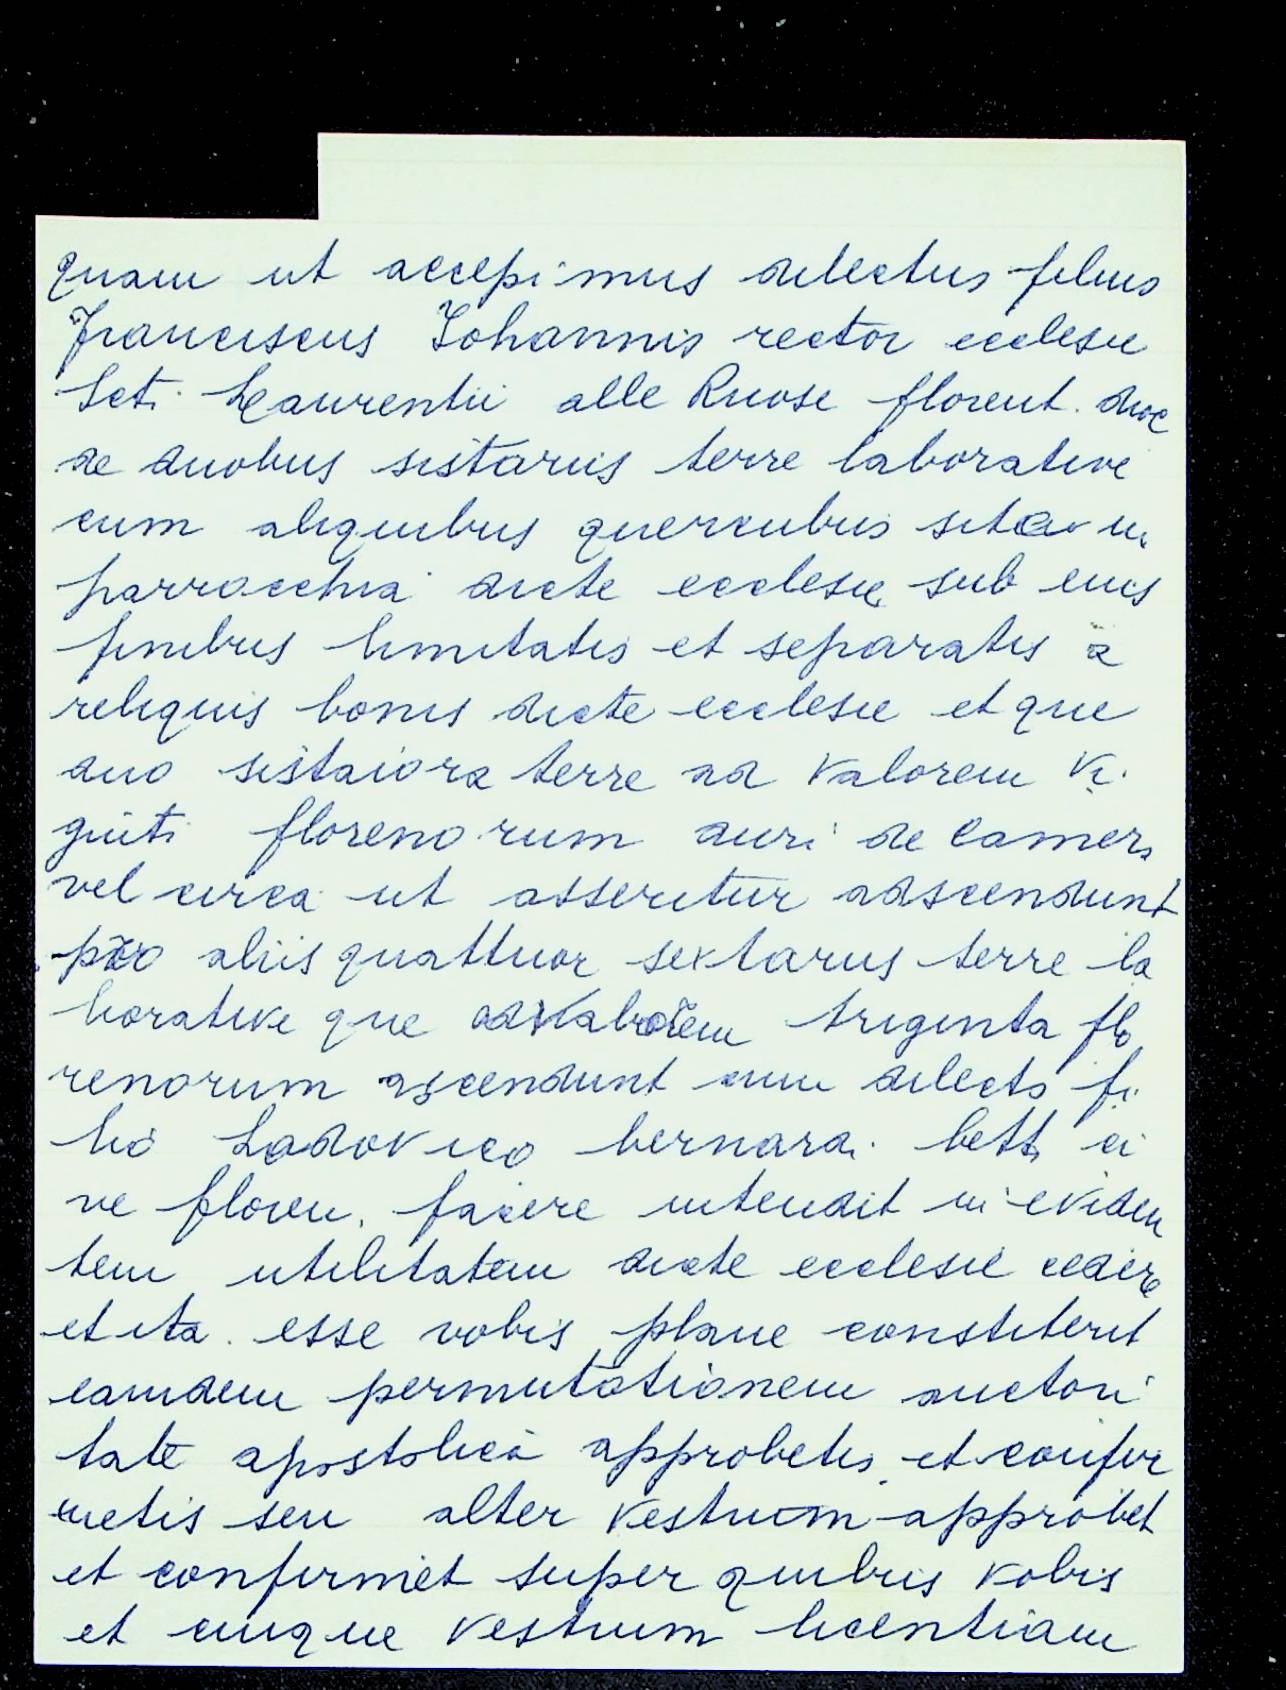 quam ut accepimus dilectus filius
Franciscus Johannis rector ecclesie
Scti. Laurentii alle Ruose florent. dioc
de duobus sistariis terre laborative
cum aliquibus quercubus sita in
parrocchia dicte ecclesie sub cuis
finibus limitatis et separatis a
reliquis bonis dicte ecclesie et que
duo sistaiora terre ad valorem vi.
giuti florenorum auri de camera
vel circa ut asseritur adscendunt
pro aliis quattuor sextariis terre la
borative que ad valorem triginta flo
renorum ascendunt cum dilecto fi
lio Ladovico bernardi betti ci
ve floren. facere intendit in eviden
tem utilitatem dicte ecclesie cedere
et ita esse vobis plane constiterit
eamdem permutationem auctori
tate apostolica approbetis et confir
metis seu alter vestrum approbet
et confirmet super quibus vobis
et cuique vestrum licentiam